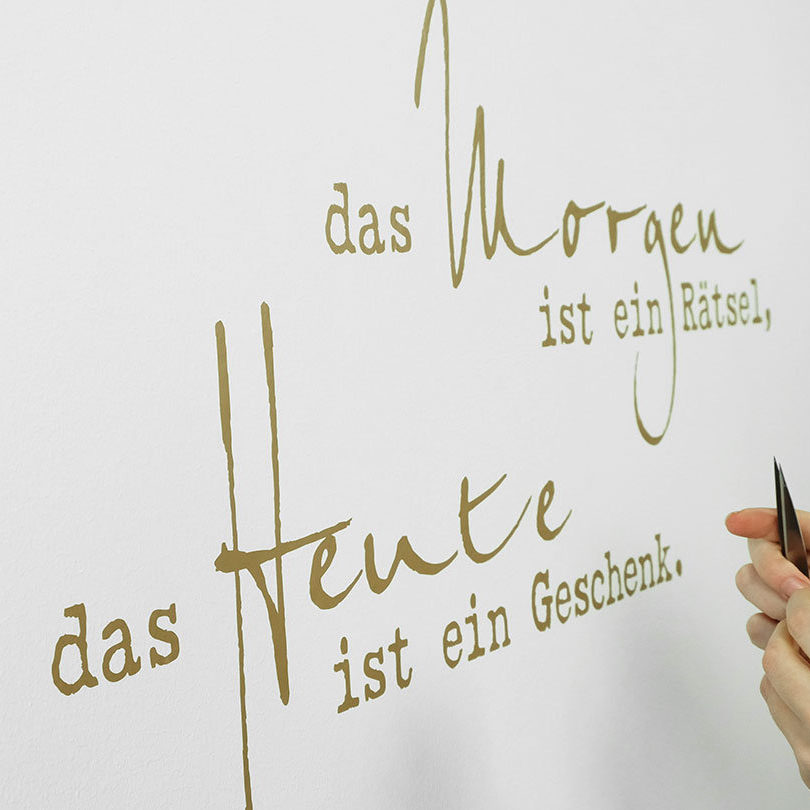 das Morgen
ist ein Rätsel,
das Heute
ist ein Geschenk.